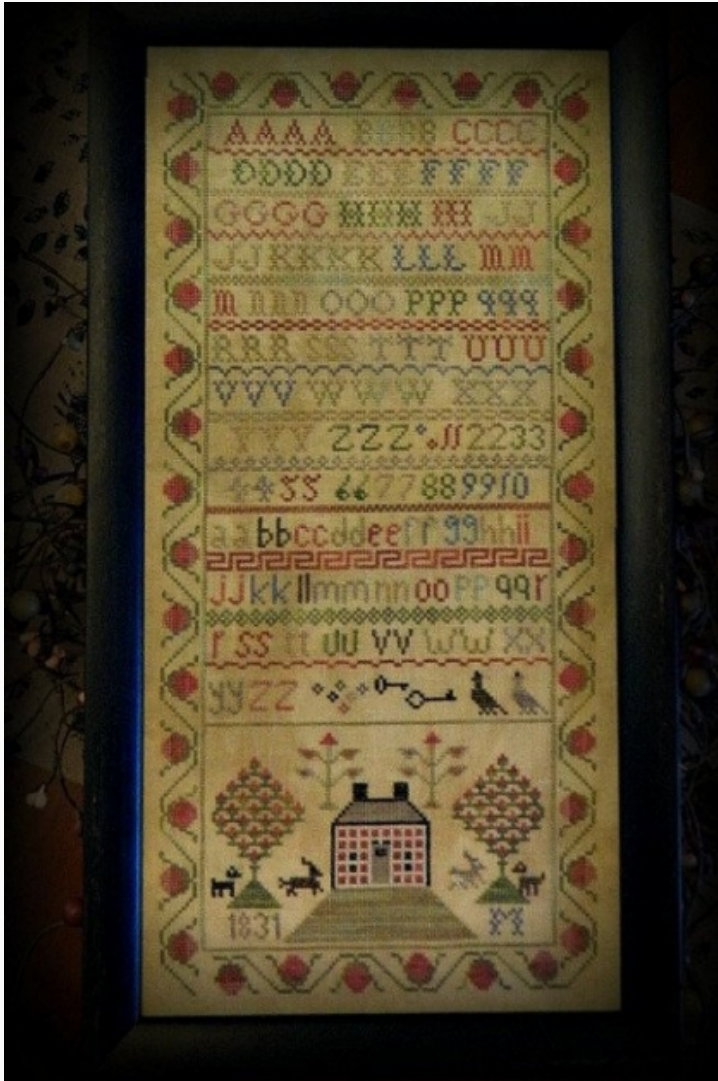 AAAA BBBB CCCC
DDDD EEE FFFF
GGGG HHH III JJ
JJ KKKK LLL mm
m nnn OOO PPP qqq
RRR SSS TTT UUU
VVV WWW XXX
YYY ZZZ 112233
44556677889910
aabbccddeeffgghhii
jjkkllmmnnooppqqr
rsstt uu vv ww xx
yyzz
1831 M